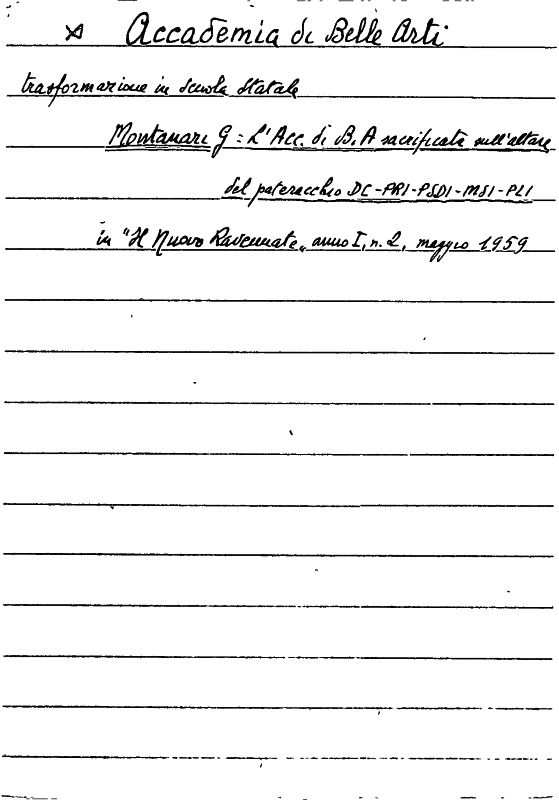 Accademia di Belle Arti
trasformazione in scuola statale
Montanari G: L'Acc. di B.A sacrificata sull'altare
del pateracchio DC-PRI-PSDI-MSI-PLI
in "Il Nuovo Ravennate„ anno I, n. 2, maggio 1959